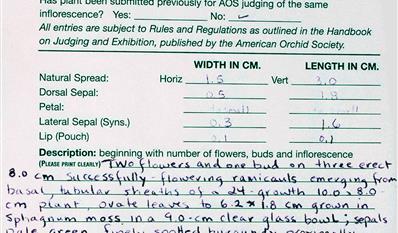 Has plant been submitted previously for AOS judging of the same
inflorescence? Yes: No: ✓
All entries are subject to Rules and Regulations as outlined in the Handbook
on Judging and Exhibition, published by the American Orchid Society.
WIDTH IN CM. LENGTH IN CM.
Natural Spread: Horiz 1.5 Vert 3.0
Dorsal Sepal: 0.5 1.8
Petal:
Lateral Sepal (Syns.) 0.3 1.6
Lip (Pouch) 0.1 0.1
Description: beginning with number of flowers, buds and inflorescence
(PLEASE PRINT CLEARLY) Two flowers and one bud on three erect
8.0 cm successfully flowering ramicauls emerging from
basal, tubular sheaths of a 24-growth 10.0 x 8.0
cm plant, ovate leaves to 6.2 x 1.8 cm grown in
sphagnum moss in a 9.0-cm clear glass bowl; sepals
pale green, finely spotted burgundy